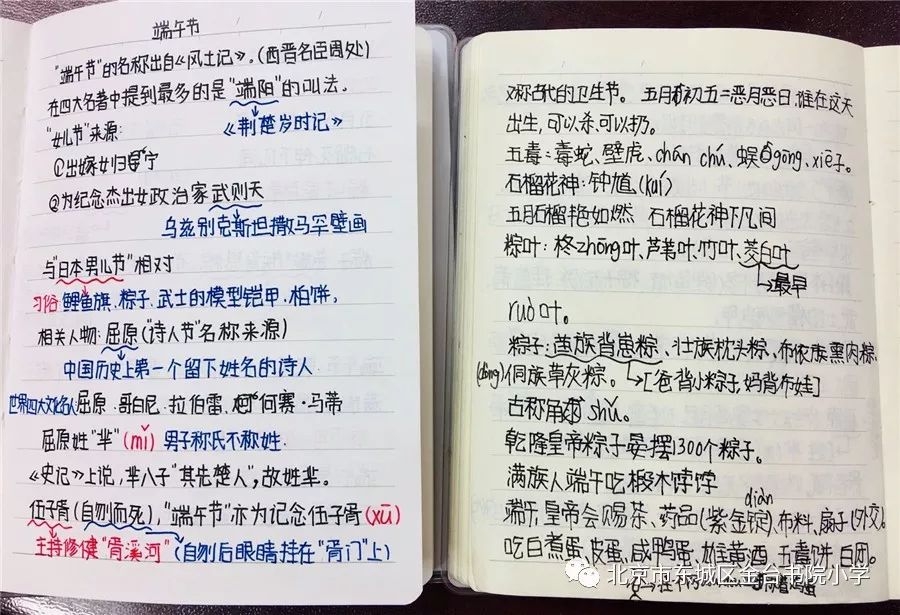 端午节
"端午节"的名称出自《风土记》。(西晋名臣周处)
在四大名著中提到最多的是"端阳"的叫法。
"女儿节"来源: 《荆楚岁时记》
①出嫁女归宁
②为纪念杰出女政治家武则天
乌兹别克斯坦撒马罕壁画
与"日本男儿节"相对
习俗:鲤鱼旗、粽子、武士的模型铠甲、柏饼,
相关人物:屈原("诗人节"名称来源)
中国历史上第一个留下姓名的诗人
世界四大文化名人:屈原·哥白尼·拉伯雷·何赛·马蒂
屈原姓"芈"(mǐ) 男子称氏不称姓.
《史记》上说,芈八子"其先楚人",故姓芈。
伍子胥(自刎而死),"端午节"亦为记念伍子胥(xū)
主持修健"胥溪河"(自刎后眼睛挂在"胥门"上)
又称古代的卫生节。 五月初五=恶月恶日,谁在这天
出生,可以杀,可以扔。
五毒:毒蛇、壁虎、chán chú、蜈gōng、xiē子。
石榴花神:钟馗(kuí)
五月石榴艳如燃 石榴花神下凡间
粽叶:柊zhōng叶、芦苇叶、竹叶、茭白叶
→最早
ruò叶。
粽子:苗族背崽粽、壮族枕头粽、布依族熏肉粽、
(dòng)侗族草灰粽。 →[爸背小粽子,妈背布娃]
古称角shǔ。
乾隆皇帝粽子宴摆1300个粽子。
满族人端午吃椴木饽饽
diàn
端午,皇帝会赐茶、药品(紫金锭)、布料、扇子(外交)。
吃白煮蛋、皮蛋、咸鸭蛋、雄黄酒、五毒饼、白团。
北京市东城区金台书院小学